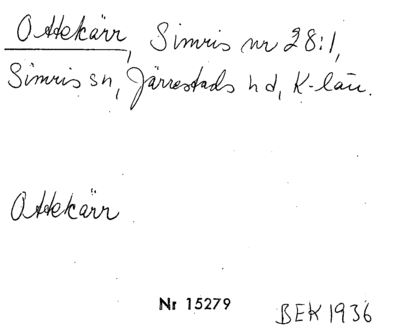 Ottekärr, Simris nr 28:1,
Simris sn, Järrestads hd, K-län.
Ottekärr
Nr 15279
BEK 1936